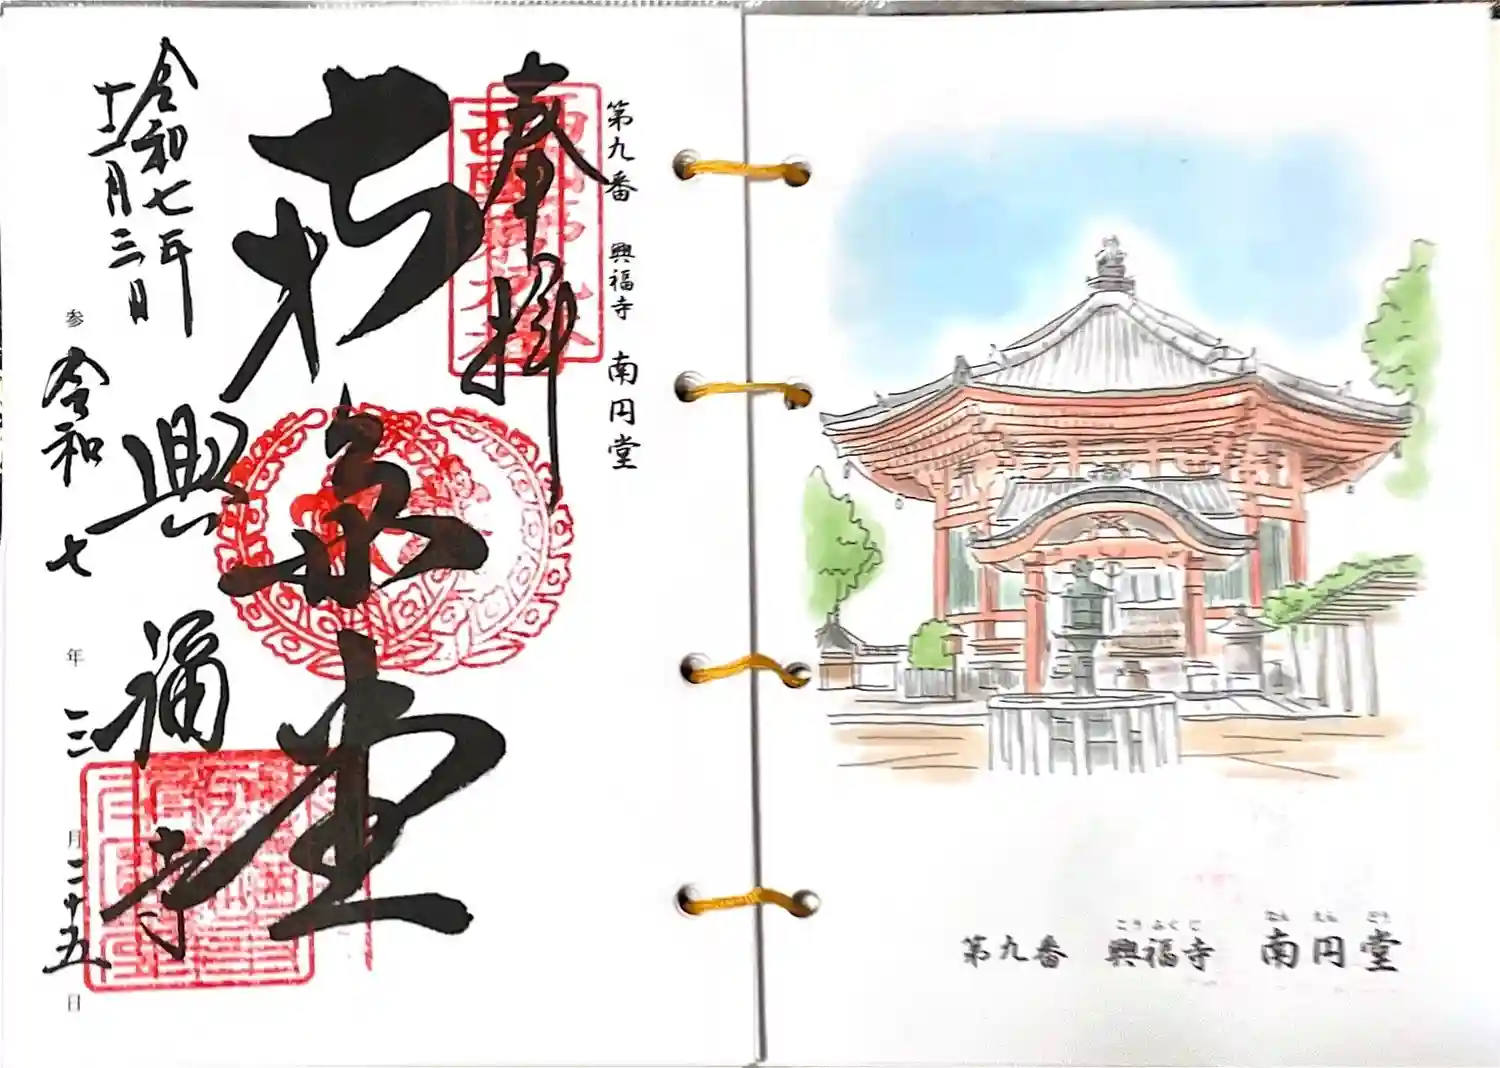 第九番 興福寺 南円堂
奉拝
興福寺
令和七年
十二月三日
参 令和 七 年 三 月 二十五 日
こうふくじ なんえんどう
第九番 興福寺 南円堂